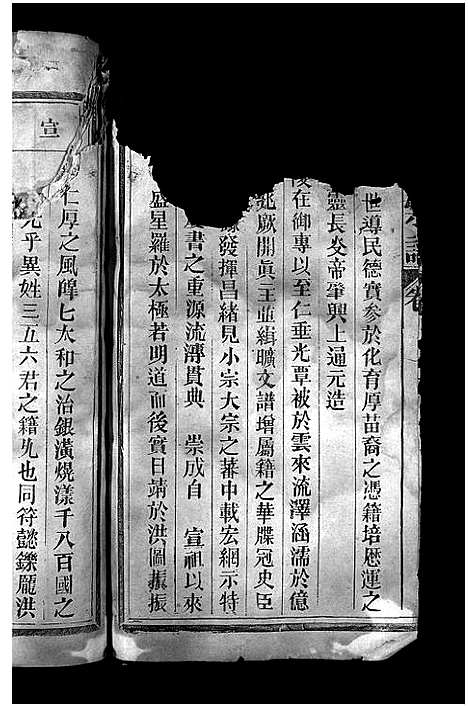 譜 卷
世導民德實參於化育厚苗裔之憑籍培歷運之
靈長炎帝肇興上通元造
在御專以至仁垂光覃被於雲來流澤涵濡於億
兆厥開眞主並緝曠文譜增屬籍之華牒冠史臣
發揮昌緒見小宗大宗之蕃中載宏網示特
書之重源流溥貫典 崇成自 宣祖以來
星羅於太極若明道而後實日靖於洪圖振振
仁厚之風皥七太和之治銀潢燒漾千八百國之
宣
乎異姓三五六君之籍凢也同符懿鑠龐洪